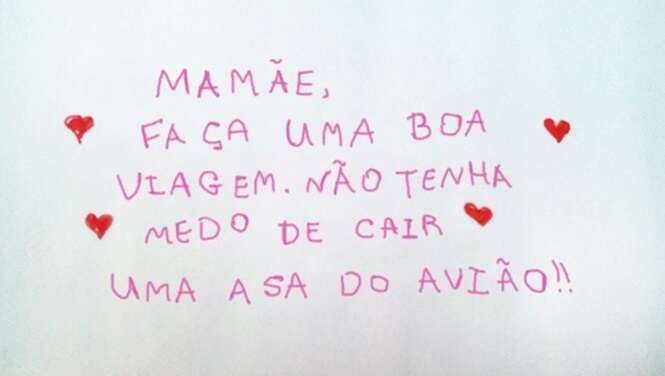 MAMÃE,
FAÇA UMA BOA
VIAGEM. NÃO TENHA
MEDO DE CAIR
UMA ASA DO AVIÃO!!